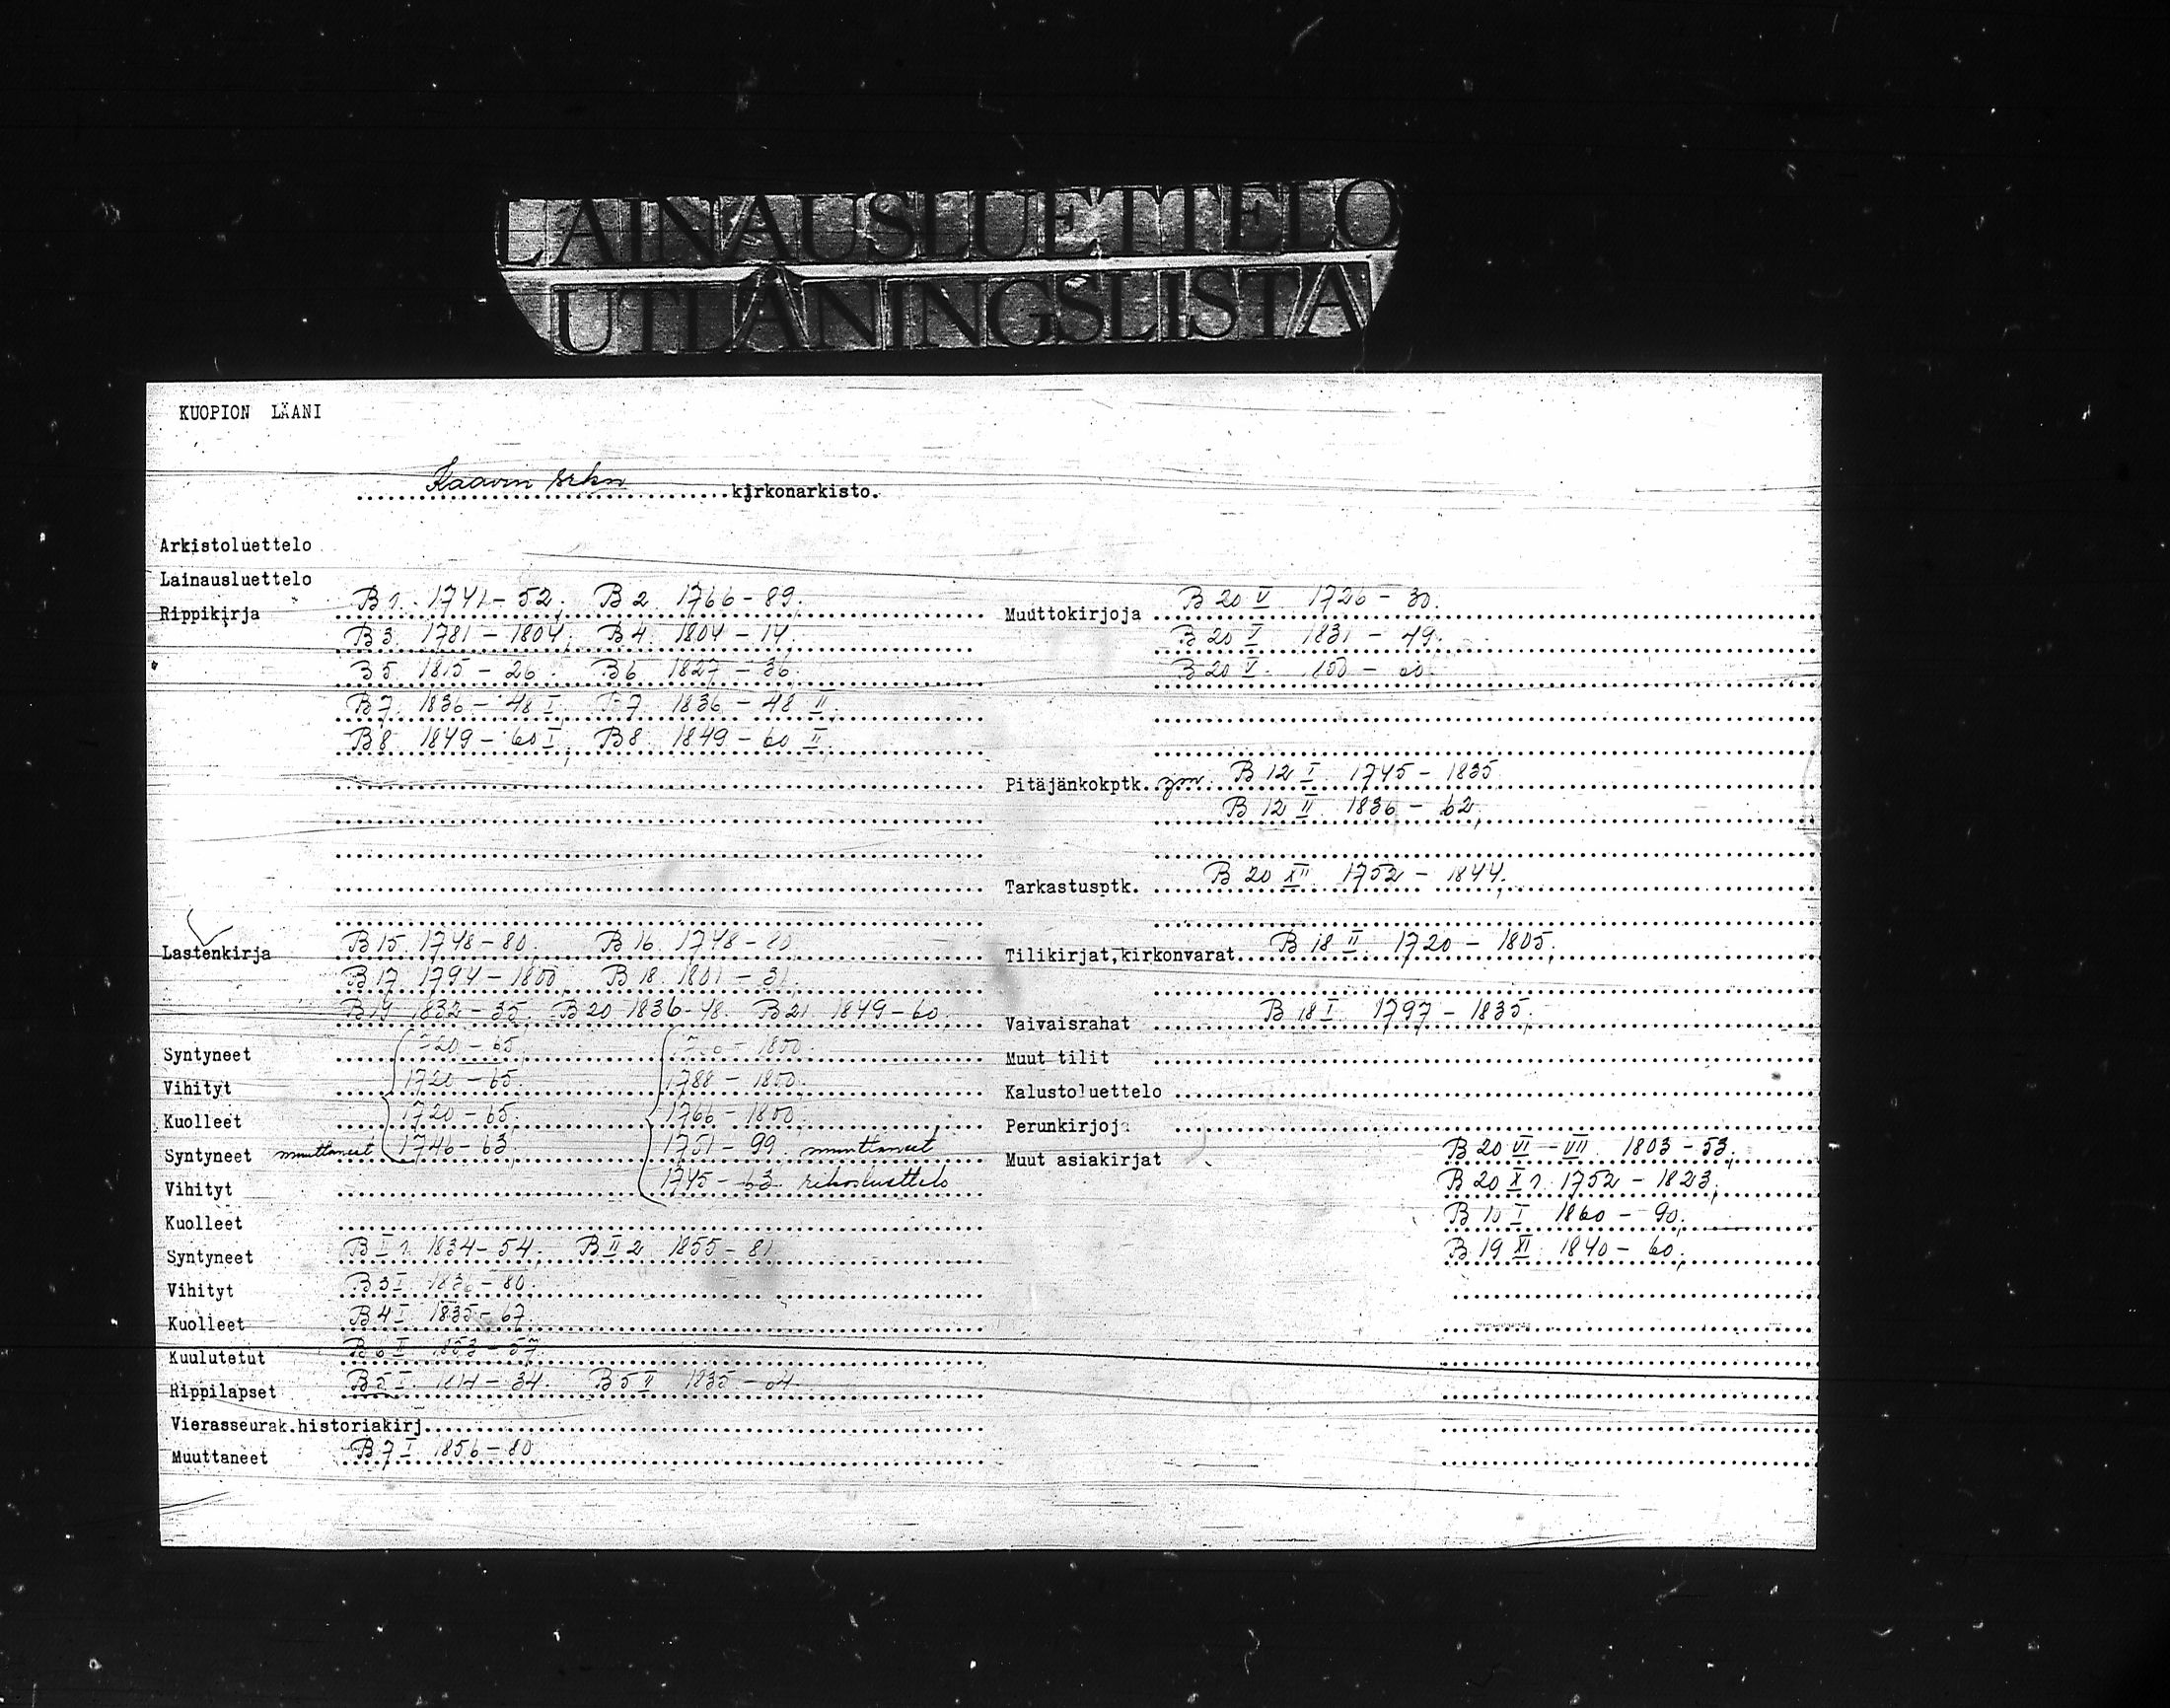 LAINAUSLUETTELO
UTLÅNINGSLISTA
KUOPION LÄÄNI
Kaavin srkn kirkonarkisto.
Arkistoluettelo
Lainausluettelo
Rippikirja B 1. 1741 - 52, B 2. 1766 - 89,
B 3. 1781 - 1804, B 4. 1804 - 14,
B 5 1815 - 26. B 6 1827 - 36.
B 7. 1836 - 48 I, B 7. 1836 - 48 II,
B 8. 1849 - 60 I, B 8. 1849 - 60 II,
Lastenkirja B 15. 1748 - 80, B 16. 1748 - 80,
B 17. 1794 - 1800, B 18. 1801 - 31,
B 19 1832 - 35, B 20 1836 - 48. B 21. 1849 - 60,
Syntyneet - 65, - 1850.
Vihityt 1720 - 65. 1788 - 1850.
Kuolleet 1720 - 65. 1766 - 1850.
Syntyneet muuttaneet 1746 - 63, 1751 - 99. muuttaneet
Vihityt 1745 - 63. rikosluettelo
Kuolleet
Syntyneet B I 1. 1834 - 54, B II 2. 1855 - 81
Vihityt B 3 I 1836 - 80.
Kuolleet B 4 I 1835 - 67.
Kuulutetut B 6 1853 - 57.
Rippilapset B 5 I. 1814 - 34. B 5 II 1835 -
Vierasseurak.historiakirj.
Muuttaneet B 7 I 1856 - 80
Muuttokirjoja B 20 V 1726 - 30.
B 20 V 1831 - 49.
B 20 V.
Pitäjänkokptk. ym. B 12 I. 1745 - 1835
B 12 II. 1836 - 62,
Tarkastusptk. B 20 XII 1752 - 1844,
Tilikirjat,kirkonvarat B 18 II. 1720 - 1805,
Vaivaisrahat B 18 I. 1797 - 1835,
Muut tilit
Kalustoluettelo
Perunkirjoj
Muut asiakirjat B 20 VI - VII. 1803 - 53,
B 20 X 1. 1752 - 1823,
B 10 I 1860 - 90,
B 19 XI. 1840 - 60.